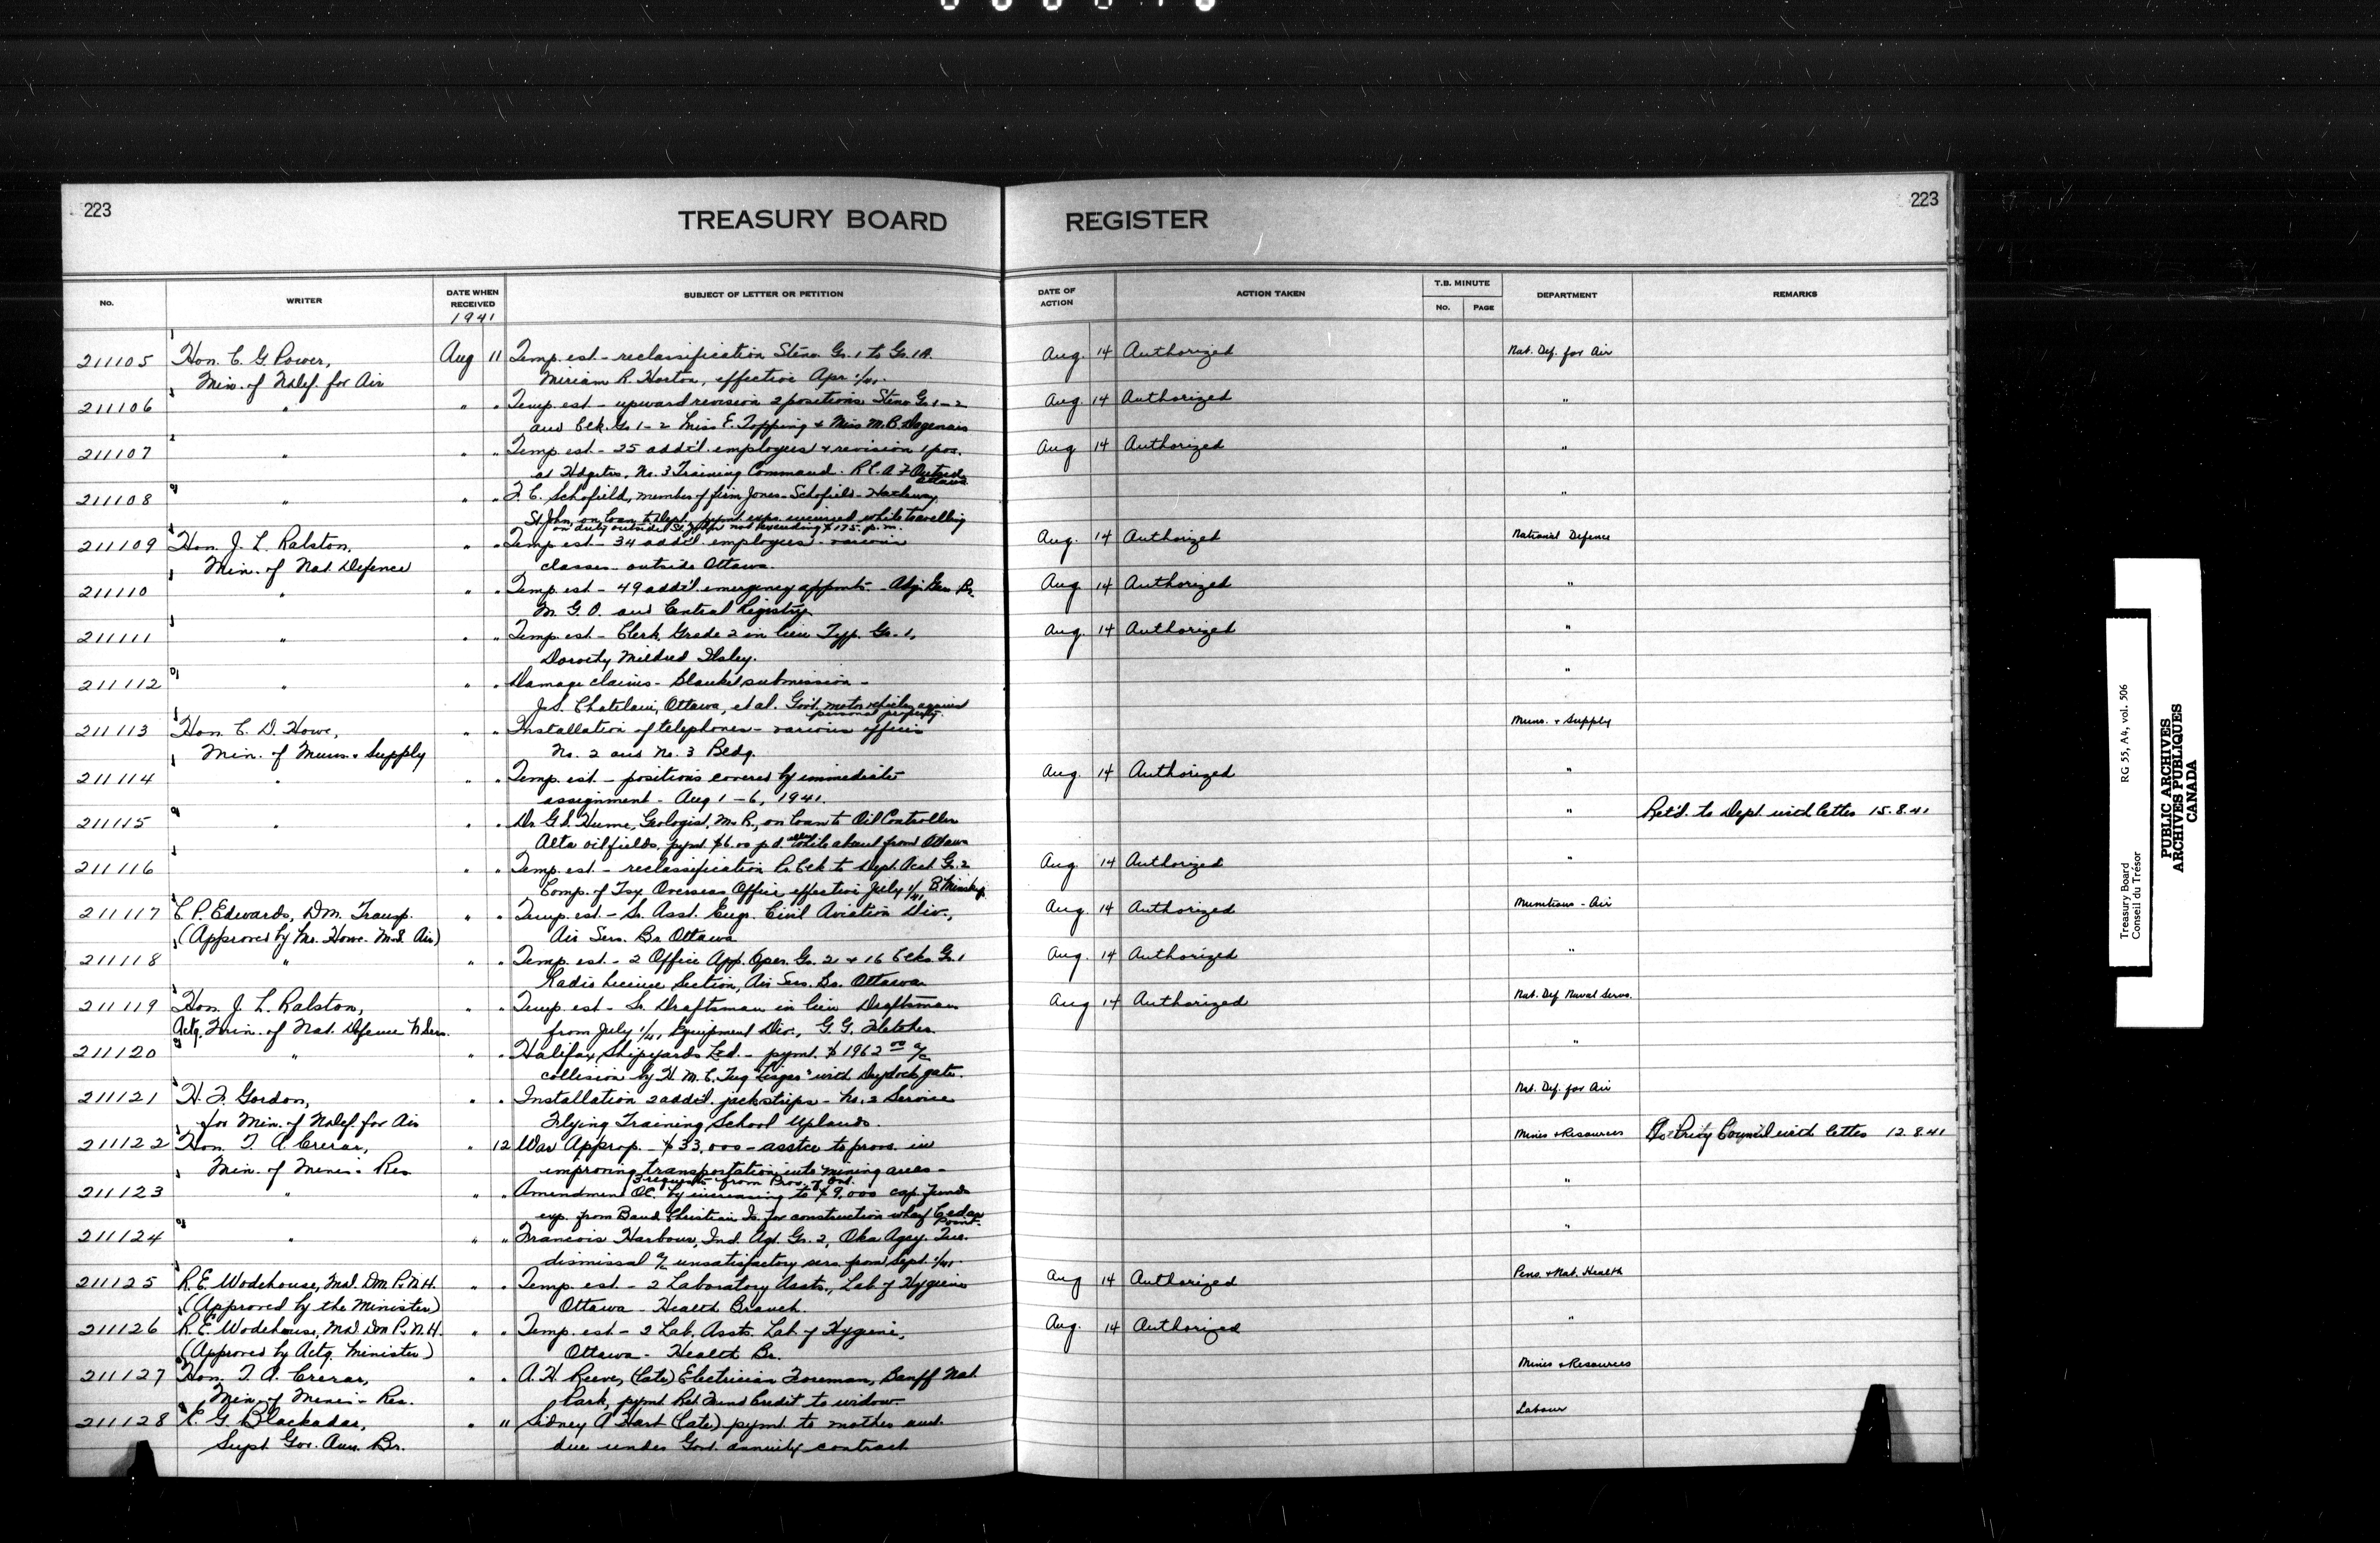 223
TREASURY BOARD REGISTER
223
No. WRITER DATE WHEN RECEIVED SUBJECT OF LETTER OR PETITION DATE OF ACTION ACTION TAKEN T.B. MINUTE No. PAGE DEPARTMENT REMARKS
1941
211105 Hon. C. G. Power, Aug 11 Temp. est. - reclassification Steno. Gr. 1 to Gr. 1A. Aug. 14 Authorized Nat. Def. for Air
Min. of N. Def. for Air Miriam R. Horton, effective Apr. 1/41.
211106 " " " Temp. est - upward revision 2 positions Steno Gr. 1-2 Aug. 14 Authorized "
and Clk. Gr. 1-2 Miss E. Topping + Miss M. B. Dagenais
211107 " " " Temp. est - 25 add'l. employees + revision 1 pos. Aug 14 Authorized "
at Hdqtrs. No. 3 Training Command. R.C.A.F Outside Ottawa
211108 " " " F. C. Schofield, member of firm Jones-Schofield-Hatheway, "
St John, on loan to Dept. pymt. exps. incurred while travelling
on duty outside St. John not exceeding $175. p.m.
211109 Hon. J. L. Ralston, " " Temp. est - 34 add'l. employees - various Aug. 14 Authorized National Defence
Min. of Nat. Defence classes - outside Ottawa.
211110 " " " Temp. est - 49 add'l. emergency appmts - Adj. Gen. Br. Aug 14 Authorized "
M. G. O. and Central Registry
211111 " " " Temp. est - Clerk Grade 2 in lieu Typ. Gr. 1, Aug. 14 Authorized "
Dorothy Mildred
211112 " " " Damage claims - Blanket submission - "
J.S. Chatelain, Ottawa, et al. Govt. motor vehicles against
personal property.
211113 Hon. C. D. Howe, " " Installation of telephones - various offices Muns. + Supply
Min. of Muns. + Supply No. 2 and No. 3 Bldg.
211114 " " " Temp. est. - positions covered by immediate Aug. 14 Authorized "
assignment - Aug 1-6, 1941.
211115 " " " Dr. G. S. Hume, Geologist, M. R., on loan to Oil Controller " Ret'd. to Dept. with letter 15.8.41
Alta oilfields, pymt $6.00 p.d. while absent from Ottawa
211116 " " Temp. est. - reclassification P. Clk to Dept. Acct Gr. 2 Aug 14 Authorized "
Comp. of Tsy Overseas Office, effective July 1/41,
211117 C. P. Edwards, D.M. Transp. " " Temp. est - Sr. Asst. Eng. Civil Aviation Div., Aug. 14 Authorized Munitions - Air
(Approved by Mr. Howe. M.S. Air) Air Serv. Br. Ottawa
211118 " " " Temp. est - 2 Office App. Oper. Gr. 2 + 16 Clks. Gr. 1 Aug. 14 Authorized "
Radio License Section, Air Serv. Br. Ottawa
211119 Hon. J. L. Ralston, " " Temp. est - Sr. Draftsman in lieu Draftsman Aug 14 Authorized Nat. Def. Naval Servs.
Actg. Min. of Nat. Defence N. Serv. from July 1/41, Equipment Div., G. G. Fletcher
211120 " " " Halifax Shipyards Ltd. - pymt. $1962.00 a/c "
collision by H. M. C. Tug with Drydock gate.
211121 H. F. Gordon, " " Installation 2 add'l. jackstrips - No. 2 Service Nat. Def. for Air
for Min. of N. Def. for Air Flying Training School Uplands.
211122 Hon. T. A. Crerar, " 12 War Approp. - $33,000 - asstce to provs. in Mines + Resources To Privy Council with letter 12.8.41
Min. of Mines - Res improving transportation into mining areas -
3 requests from Prov. of Ont.
211123 " " " Amendment OC. by increasing to $9,000 cap. funds "
exp. from Band Christian Is. for construction wharf Cedar Point.
211124 " " " Francois Harbour, Ind. Agt. Gr. 2, Oka Agcy. Que. "
dismissal a/c unsatisfactory serv. from Sept. 1/41.
211125 R. E. Wodehouse, M.D. D.M. P. N. H. " " Temp. est - 2 Laboratory Assts., Lab of Hygiene Aug 14 Authorized Pens. + Nat. Health
(Approved by the Minister) Ottawa - Health Branch.
211126 R. E. Wodehouse, M.D. D.M. P. N. H. " " Temp. est - 2 Lab. Assts. Lab. of Hygiene, Aug. 14 Authorized "
(Approved by Actg. Minister) Ottawa - Health Br.
211127 Hon. T. A. Crerar, " " A. H. Reeve, (late) Electrician Foreman, Banff Nat. Mines + Resources
Min. of Mines - Res. Park, pymt Ret. Fund Credit to widow.
211128 E. G. Blackadar, " " Sidney A Hart (late) pymt. to mother amt. Labour
Supt Gov. Ann. Br. due under Govt. annuity contract
Treasury Board RG 55, A4, vol. 506
Conseil du Trésor
PUBLIC ARCHIVES
ARCHIVES PUBLIQUES
CANADA